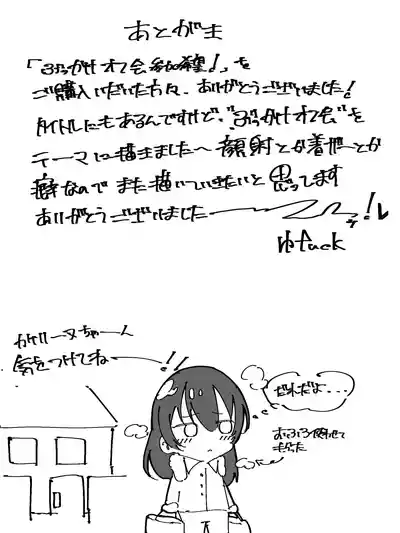 あとがき
「ぶっかけオフ会参加希望！」を
ご購入いただいた方々、ありがとうございました！
タイトルにもあるんですけど、"ぶっかけオフ会"を
テーマに描きました〜 顔射とか着衣とか
癖なのでまた描いていきたいと思ってます
ありがとうございました〜!!
ゆfuck
ちゃーん
気をつけてねー
!!
だれだよ...
おふろ使わせて
もらった